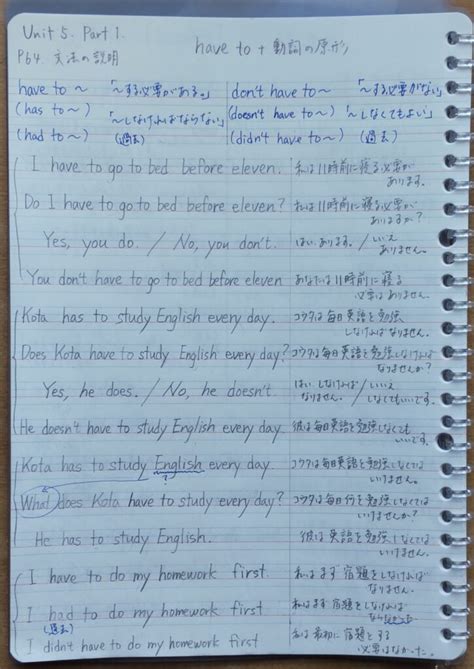 Unit 5. Part 1.
P64. 文法の説明
have to + 動詞の原形
have to ~ 「~する必要がある。」
(has to ~) 「~しなければならない」
(had to ~) (過去)
don't have to ~ 「~する必要がない」
(doesn't have to ~) 「~しなくてもよい」
(didn't have to ~) (過去)
I have to go to bed before eleven. 私は11時前に寝る必要が
あります。
Do I have to go to bed before eleven? 私は11時前に寝る必要が
ありますか?
Yes, you do. / No, you don't. はい、あります。/ いいえ
ありません。
You don't have to go to bed before eleven あなたは11時前に寝る
必要はありません。
Kota has to study English every day. コウタは毎日英語を勉強
しなければなりません。
Does Kota have to study English every day? コウタは毎日英語を勉強しなければ
なりませんか?
Yes, he does. / No, he doesn't. はい、しなければ / いいえ
なりません。/ しなくてもいいです。
He doesn't have to study English every day. 彼は毎日英語を勉強しなくても
いいです。
Kota has to study English every day. コウタは毎日英語を勉強しなくては
いけません。
?
What does Kota have to study every day? コウタは毎日何を勉強しなくては
いけませんか?
He has to study English. 彼は英語を勉強しなくては
いけません。
I have to do my homework first. 私はまず宿題をしなければ
なりません。
I had to do my homework first. 私はまず宿題をしなければ
(過去)
I didn't have to do my homework first 私は最初に宿題をする
必要はなかった。